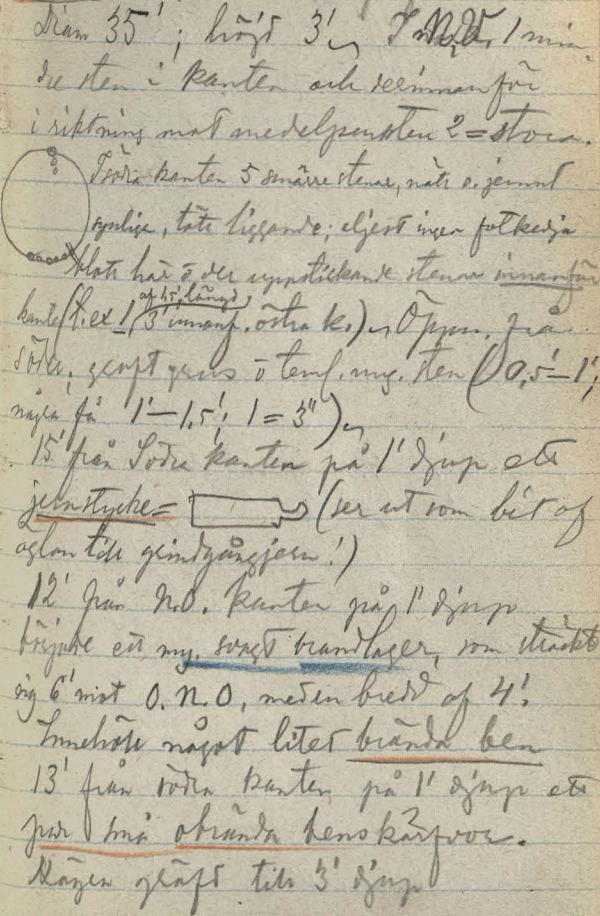 Diam 35'; höjd 3'. I N.V. 1 min-
dre sten i kanten och derinnanför
i riktning mot medelpunkten 2 = stora.
I södra kanten 5 smärre stenar, nätt o. jemnt
synliga, tätt liggande; eljest ingen fotkedja
Blott här o der uppstickande stenar innanför
kanten (t. ex 1, af 1,5' längd, 3' innanf. östra k.) Öppn. från
söder; groft grus o teml. myc. sten (0,5'–1';
några få 1'–1,5'; 1 = 3')
15' från Södra kanten på 1' djup ett
jernstycke = (ser ut som bit af
öglan till grindgångjern!)
12' från N.O. kanten på 1' djup
började ett my. svagt brandlager, som sträckt
sig 6' mot O.N.O, med en bredd af 4'.
Innehöll något litet brända ben
13' från södra kanten på 1' djup ett
par små obrända benskärfvor.
Högen gräfd till 3' djup